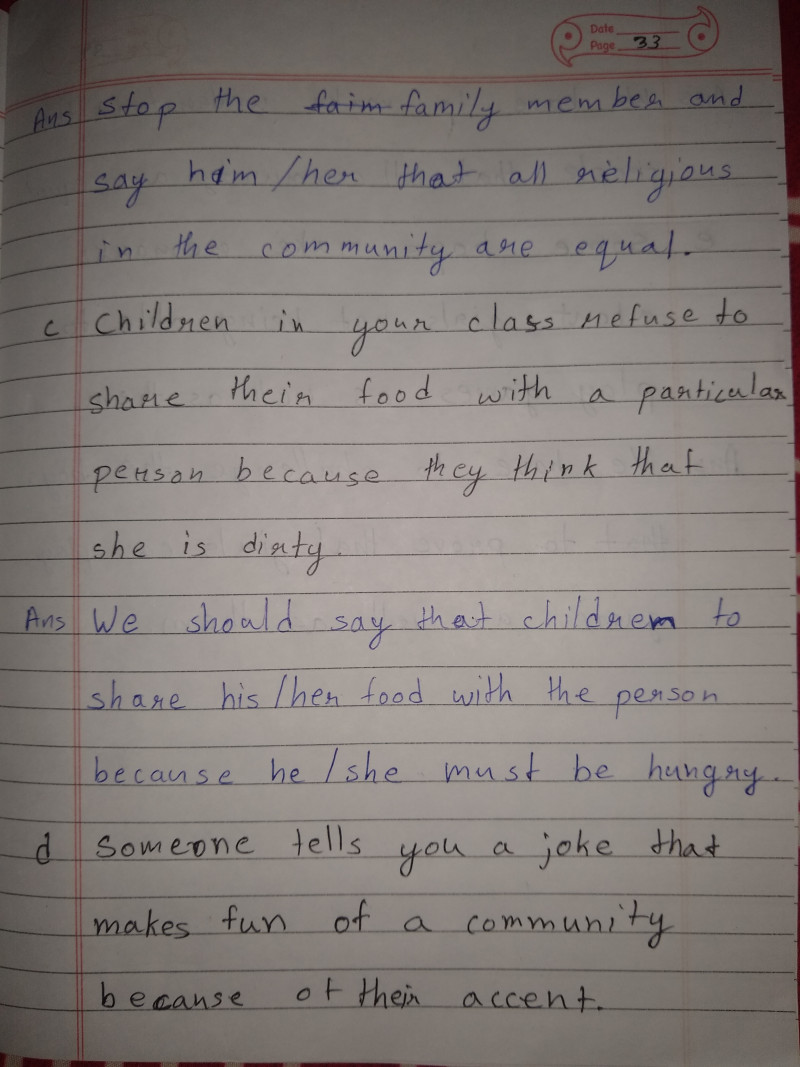 Date
Page 33
Ans Stop the faim family member and
say him/her that all religious
in the community are equal.
c Children in your class refuse to
share their food with a particular
person because they think that
she is dirty.
Ans We should say that children to
share his/her food with the person
because he/she must be hungry.
d Someone tells you a joke that
makes fun of a community
because of their accent.